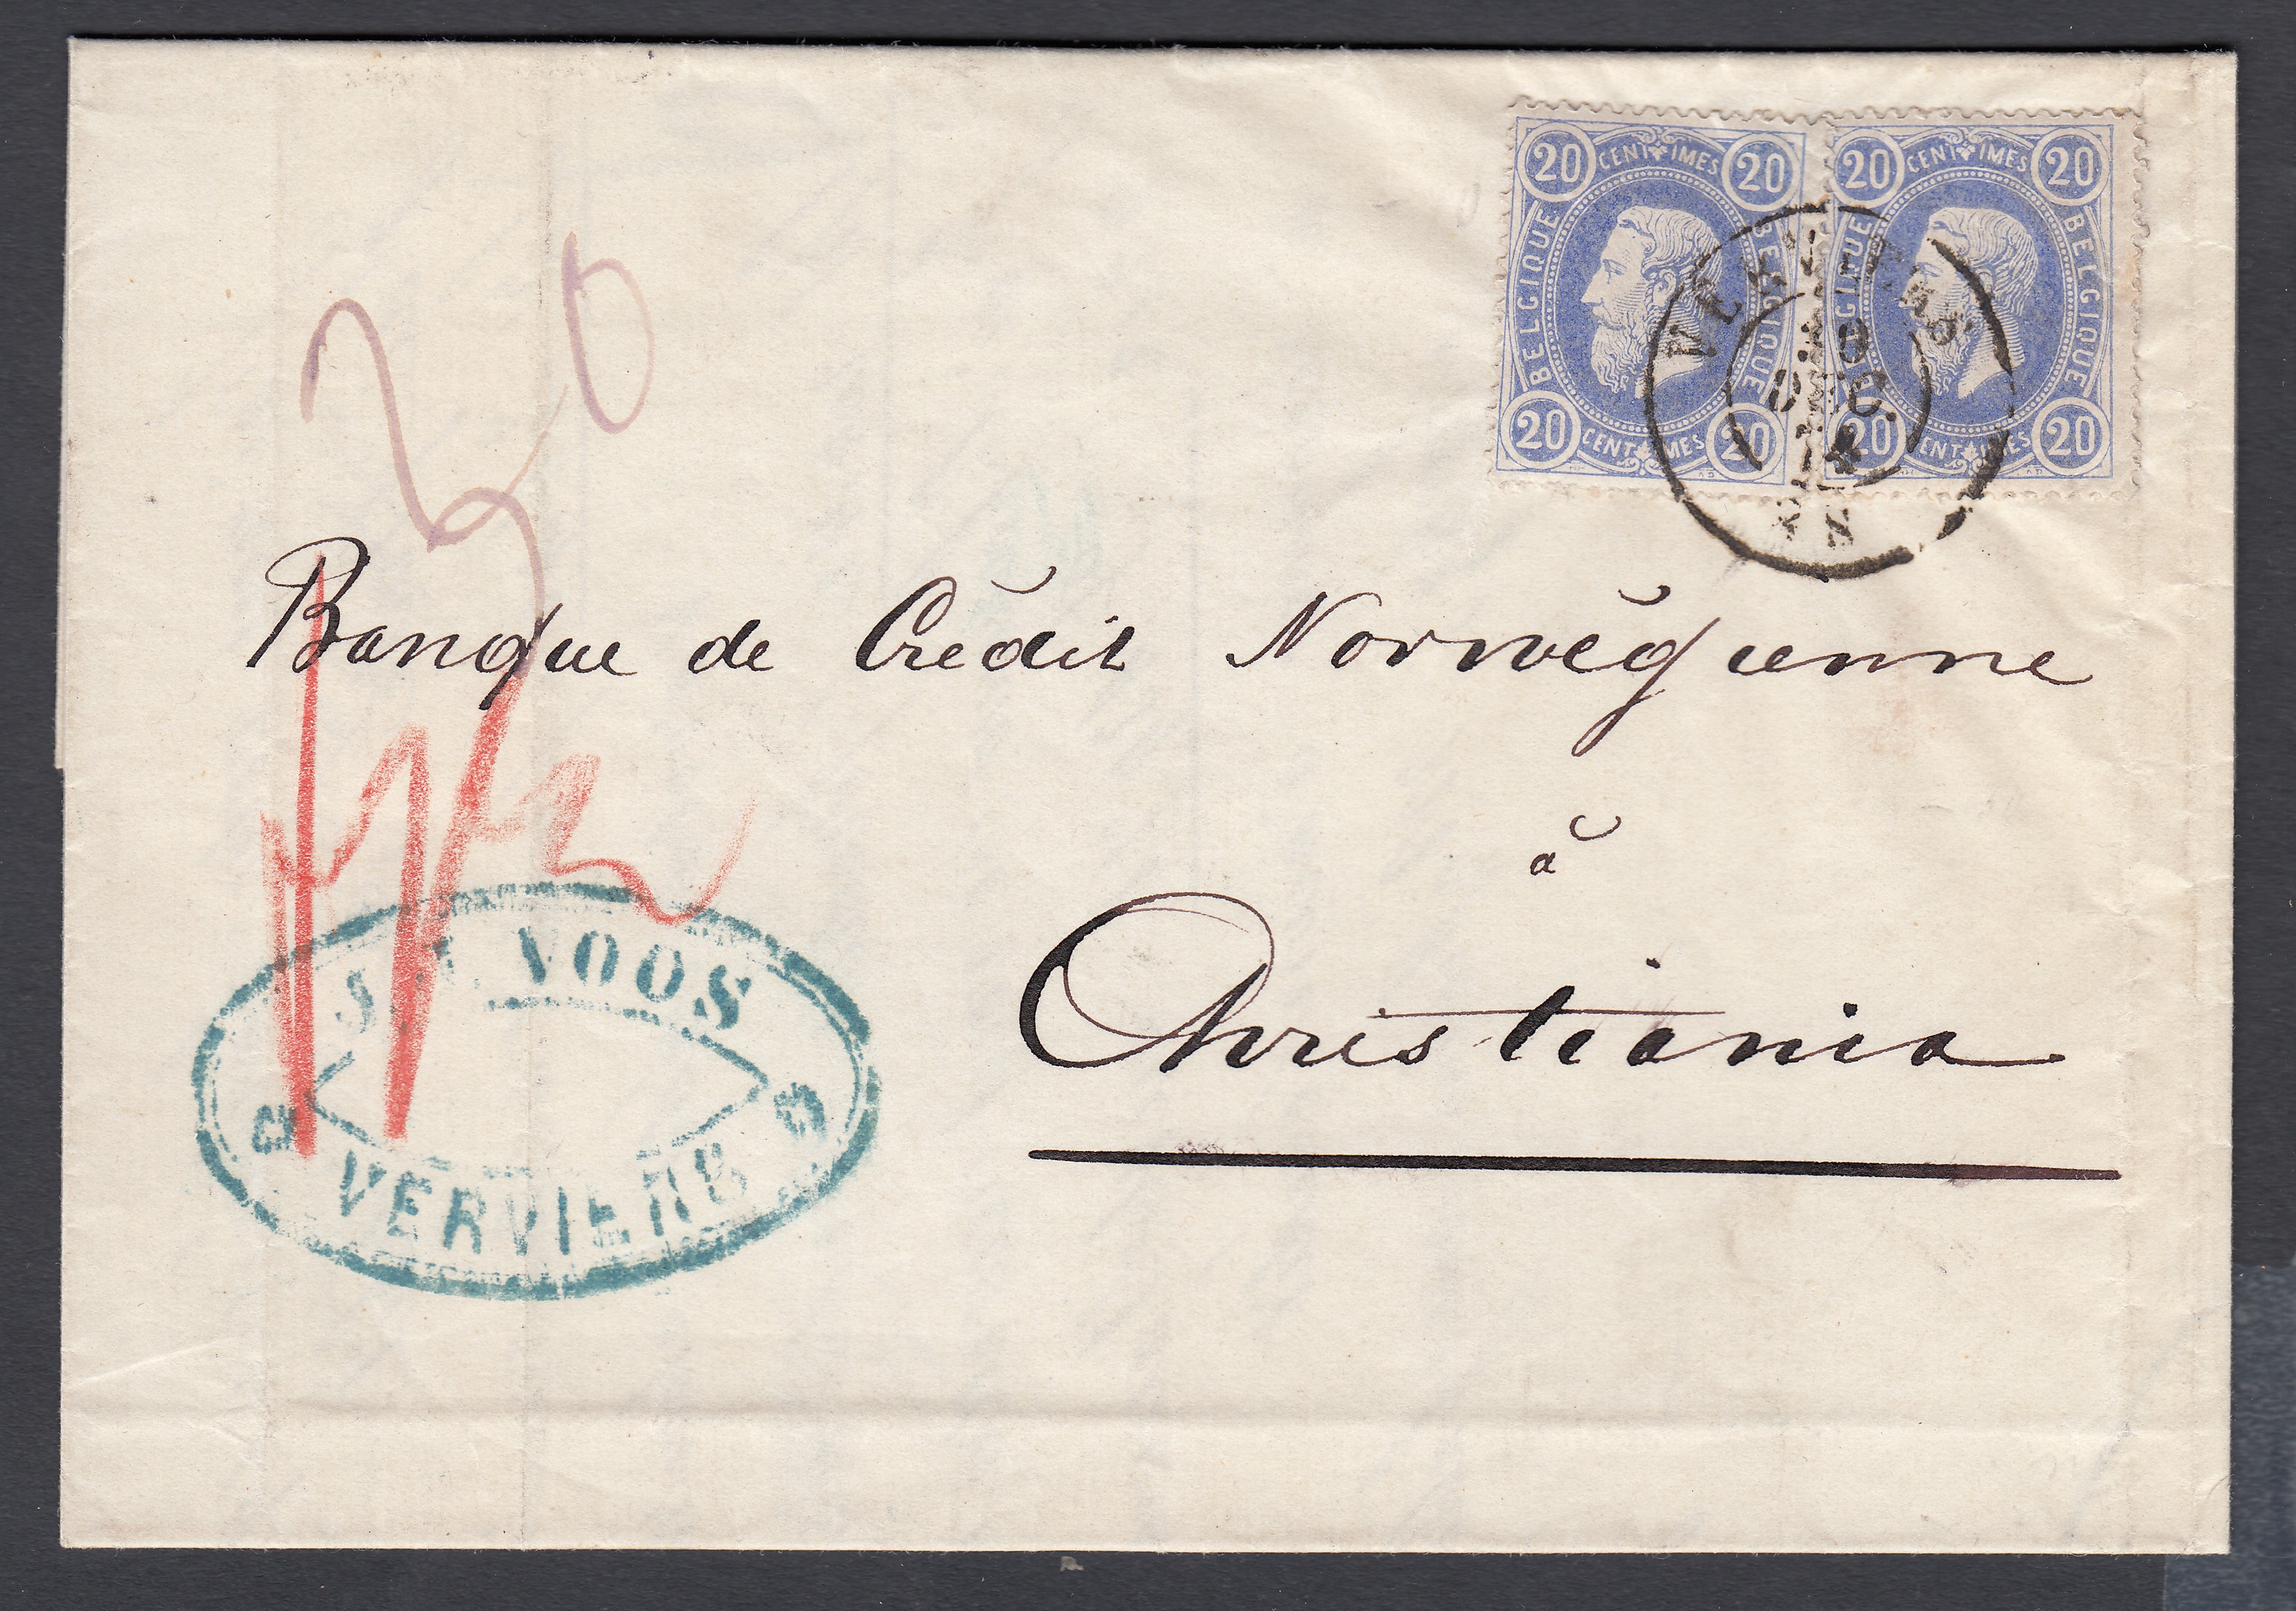 20 CENTIMES 20
BELGIQUE BELGIQUE
20 CENTIMES 20
20 CENTIMES 20
BELGIQUE BELGIQUE
20 CENTIMES 20
VERVIERS
DEC.
30
Banque de Crédit Norwégienne
à
Christiania
VOOS
VERVIERS